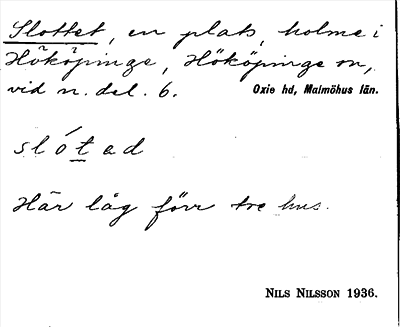 Slottet, en plats, holme i
Hököpinge, Hököpinge sn,
vid n. del. 6. Oxie hd, Malmöhus län.
slótad
Här låg förr tre hus.
NILS NILSSON 1936.